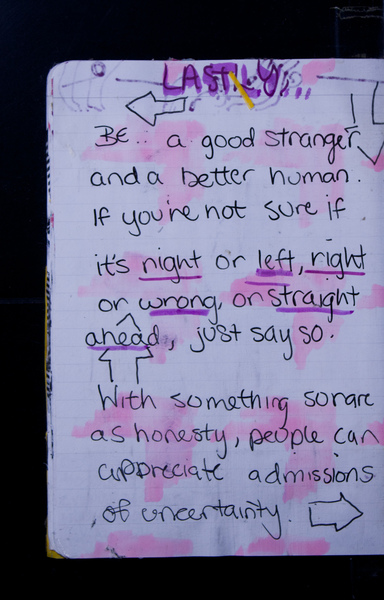 LASTLY...
BE.. a good stranger
and a better human.
If you're not sure if
it's right or left, right
or wrong, or straight
ahead, just say so.
With something so rare
as honesty, people can
appreciate admissions
of uncertainty.